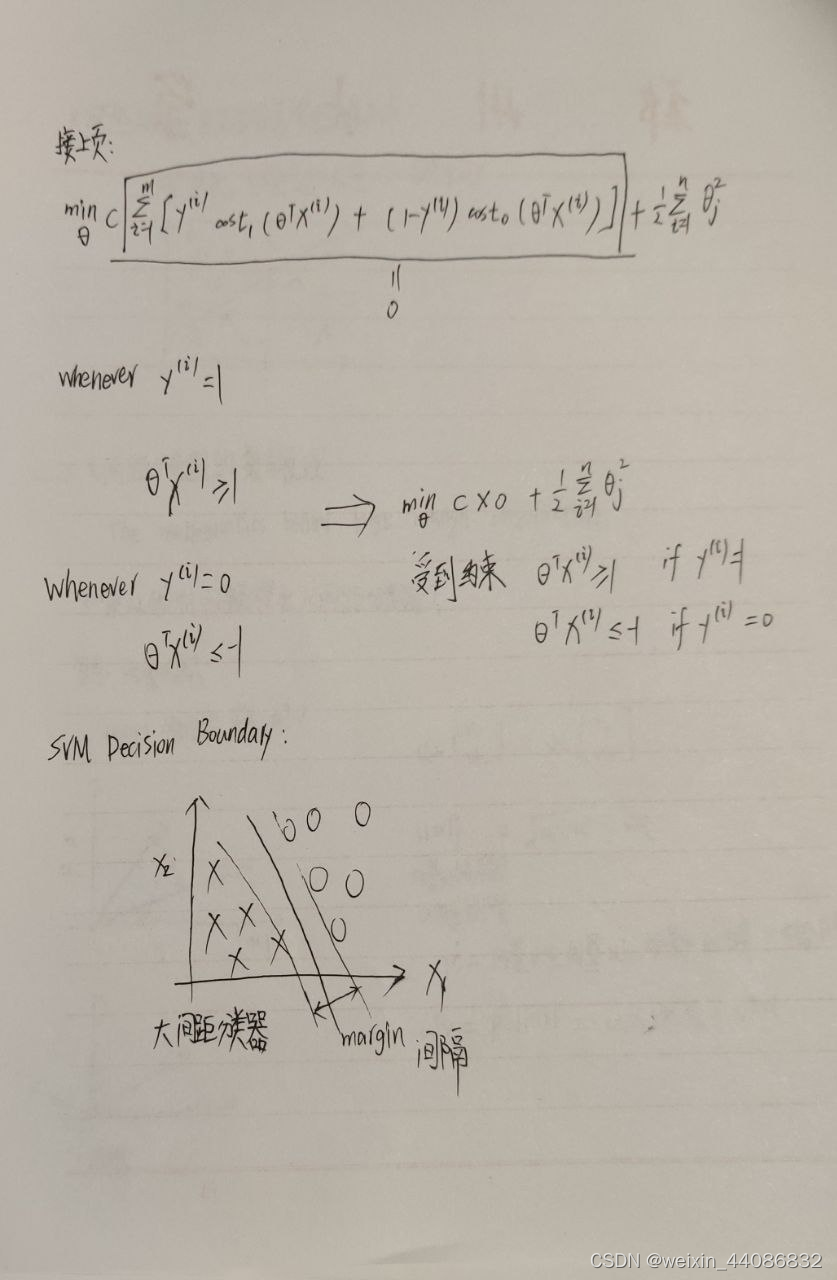 接上页:
min θ C [ m Σ i=1 [ y⁽ⁱ⁾ cost₁ (θᵀx⁽ⁱ⁾) + (1-y⁽ⁱ⁾) cost₀ (θᵀx⁽ⁱ⁾) ] ] + 1/2 n Σ i=1 θⱼ²
||
0
whenever y⁽ⁱ⁾=1
θᵀx⁽ⁱ⁾≥1 ⟹ min θ C×0 + 1/2 n Σ i=1 θⱼ²
Whenever y⁽ⁱ⁾=0 受到约束 θᵀx⁽ⁱ⁾≥1 if y⁽ⁱ⁾=1
θᵀx⁽ⁱ⁾≤-1 θᵀx⁽ⁱ⁾≤-1 if y⁽ⁱ⁾=0
SVM Decision Boundary:
x₂
x₁
大间距分类器 margin 间隔
CSDN @weixin_44086832